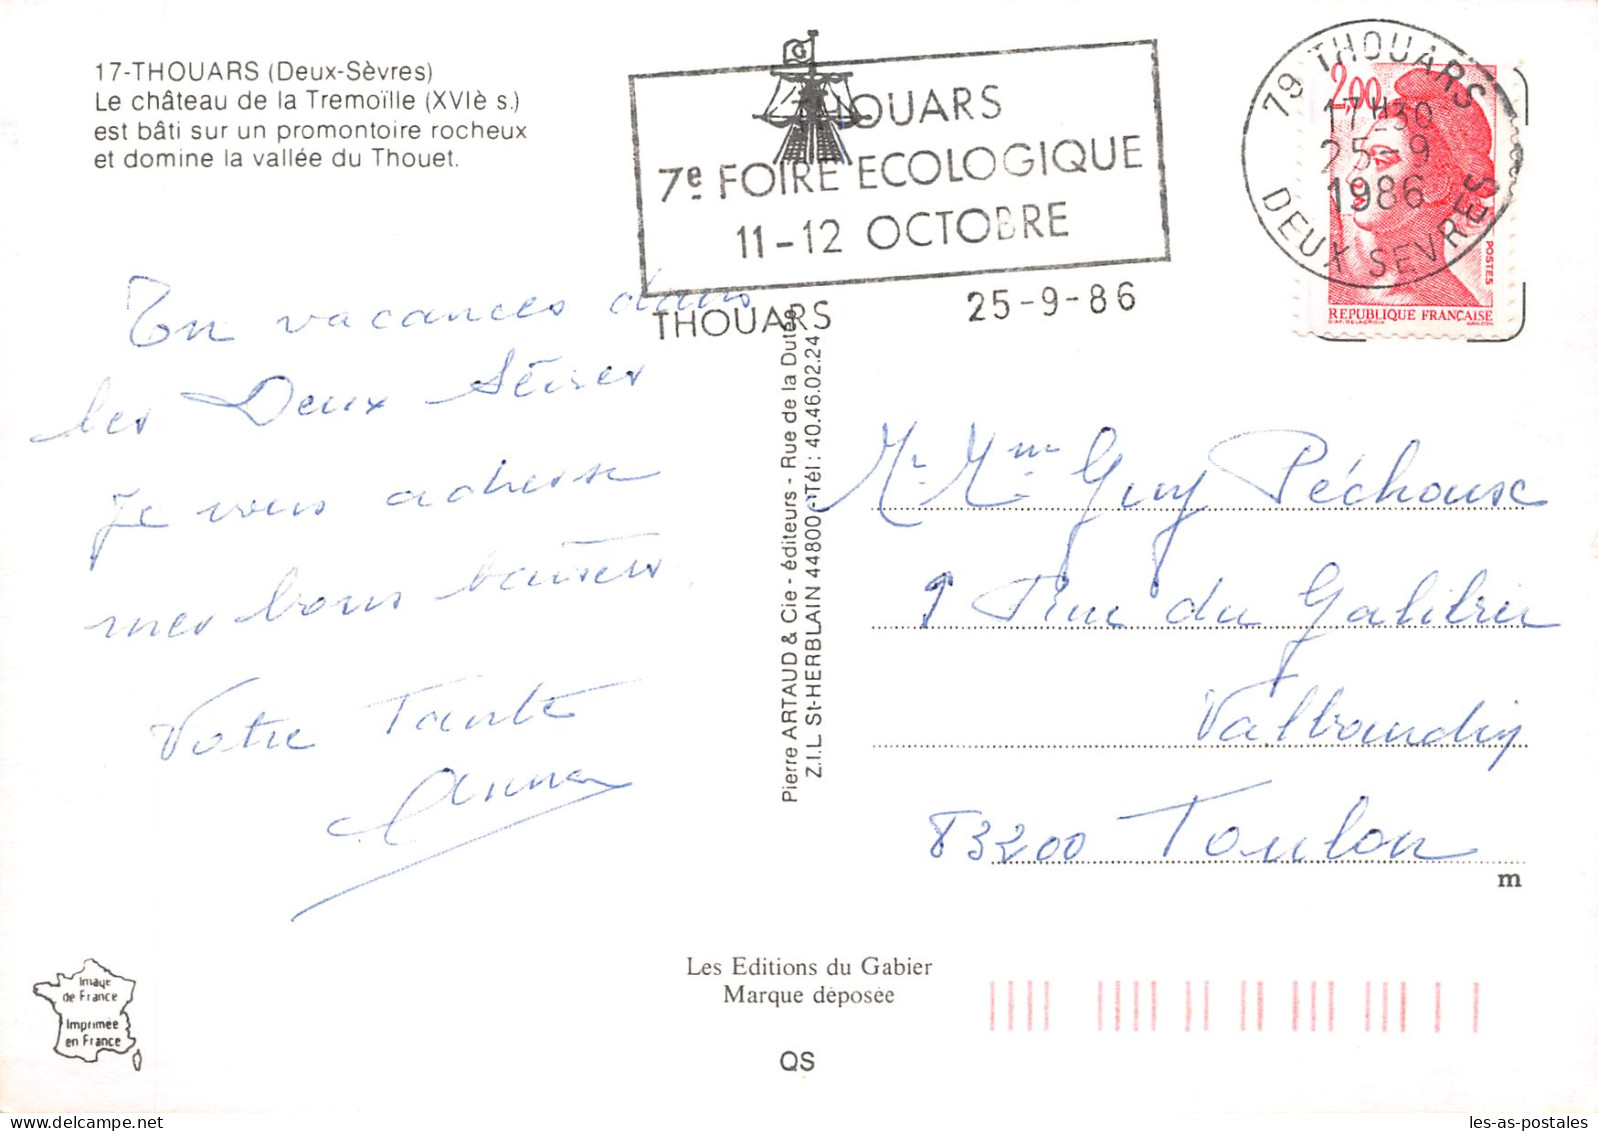 17-THOUARS (Deux-Sèvres)
Le château de la Tremoïlle (XVIè s.)
est bâti sur un promontoire rocheux
et domine la vallée du Thouet.
G
THOUARS
7e FOIRE ECOLOGIQUE
11-12 OCTOBRE
THOUARS 25-9-86
79 THOUARS
17H30
25-9
1986
DEUX SEVRES
2,00
POSTES
REPUBLIQUE FRANÇAISE
En vacances dans
les Deux Sèvres
je vous adresse
mes bons baisers
Votre Tante
Anna
Pierre ARTAUD & Cie - éditeurs - Rue de la Dutée
Z.I.L St-HERBLAIN 44800 - Tél : 40.46.02.24
Mr Mme Guy Péchouse
9 Rue du Galibier
Valbourdin
83200 Toulon
m
Les Editions du Gabier
Marque déposée
QS
Image
de France
Imprimée
en France
les-as-postales